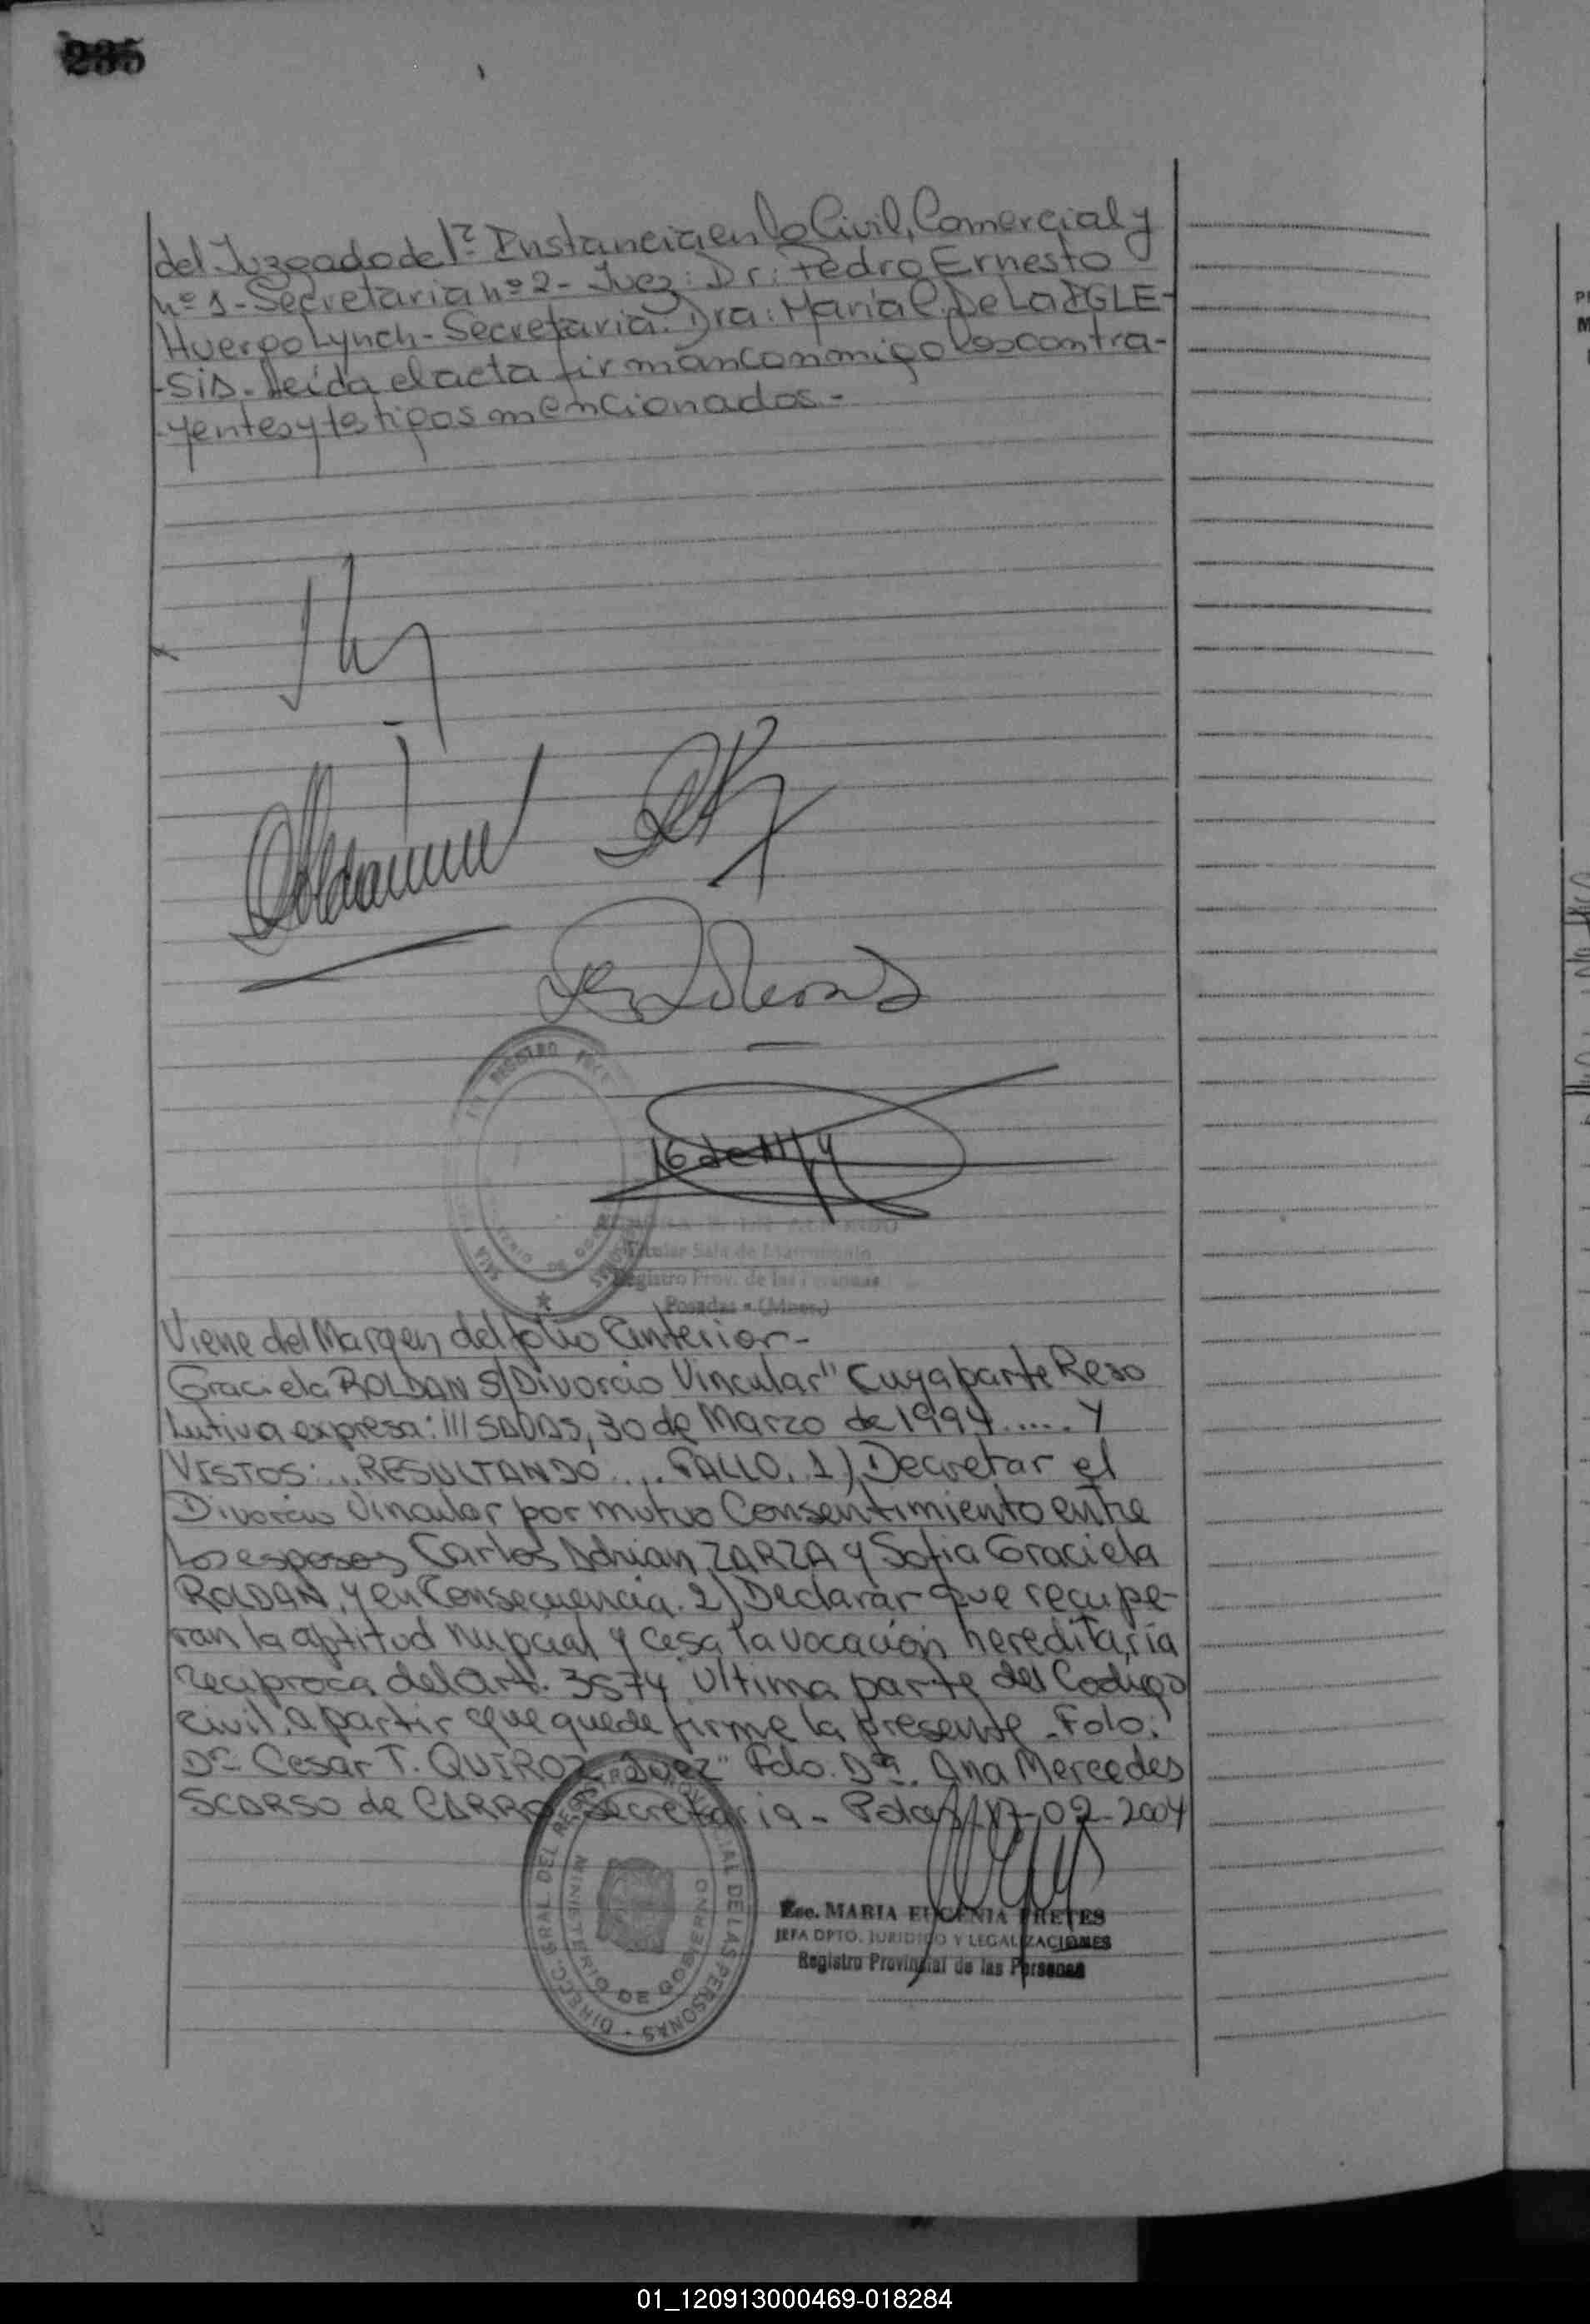 235
del Juzgado de 1ª Instancia en lo Civil, Comercial y
nº 1 - Secretaria nº 2 - Juez: Dr: Pedro Ernesto
Huergo Lynch - Secretaria. Dra: Maria C. De La IGLE-
-SIA. Leida el acta firman conmigo los contra-
-yentes y testigos mencionados.-
Titular Sala de Matrimonio
Registro Prov. de las Personas
Posadas - (Mnes.)
Viene del Margen del folio anterior -
Graciela ROLDAN S/Divorcio Vincular" Cuya parte Reso
lutiva expresa: ///SADAS, 30 de Marzo de 1994..... Y
VISTOS:... RESULTANDO.... FALLO. 1) Decretar el
Divorcio Vincular por mutuo Consentimiento entre
los esposos Carlos Adrian ZARZA y Sofia Graciela
ROLDAN, y en Consecuencia. 2) Declarar que recupe-
ran la aptitud nupcial y cesa la vocación hereditaria
reciproca del art. 3574 Ultima parte del Codigo
civil, a partir que quede firme la presente. Fdo:
Dr Cesar T. QUIROZ Juez" Fdo. Dra. Ana Mercedes
SCARSO de CARRO Secretaria - Pdas 17-02-2004
DIRECC. GRAL DEL REGISTRO PROVINCIAL DE LAS PERSONAS -
MINISTERIO DE GOBIERNO
Esc. MARIA EUGENIA PRETES
JEFA DPTO. JURIDICO Y LEGALIZACIONES
Registro Provincial de las Personas
01_120913000469-018284